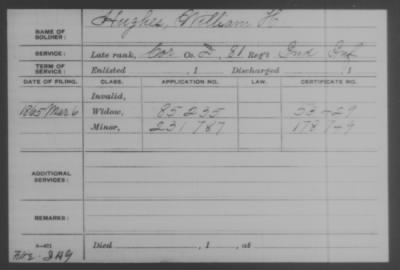 NAME OF SOLDIER: Hughes, William H.
SERVICE: Late rank, Cor Co. F, Reg't Ind Inf
TERM OF SERVICE: Enlisted , 1 Discharged , 1
DATE OF FILING. CLASS. APPLICATION NO. LAW. CERTIFICATE NO.
Invalid,
1865 Mar 6 Widow, 85 235
Minor, 231 787
ADDITIONAL SERVICES:
REMARKS:
Died , 1 , at